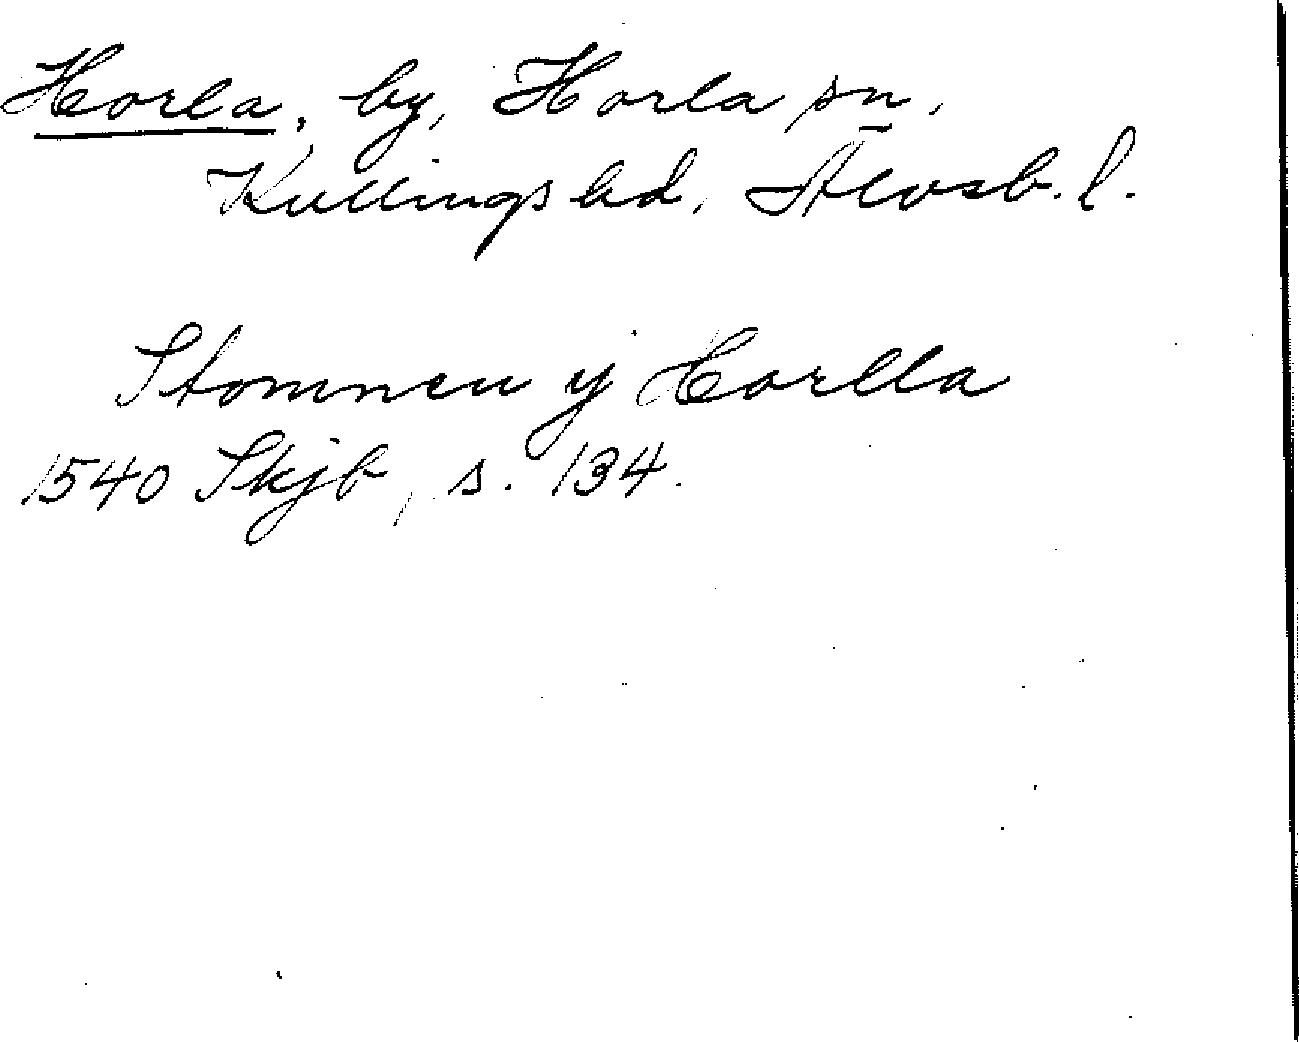 Horla, by, Horla sn,
Kullings hd, Älvsb. l.
Stomnen y Horlla
1540 Skjb, s. 134.